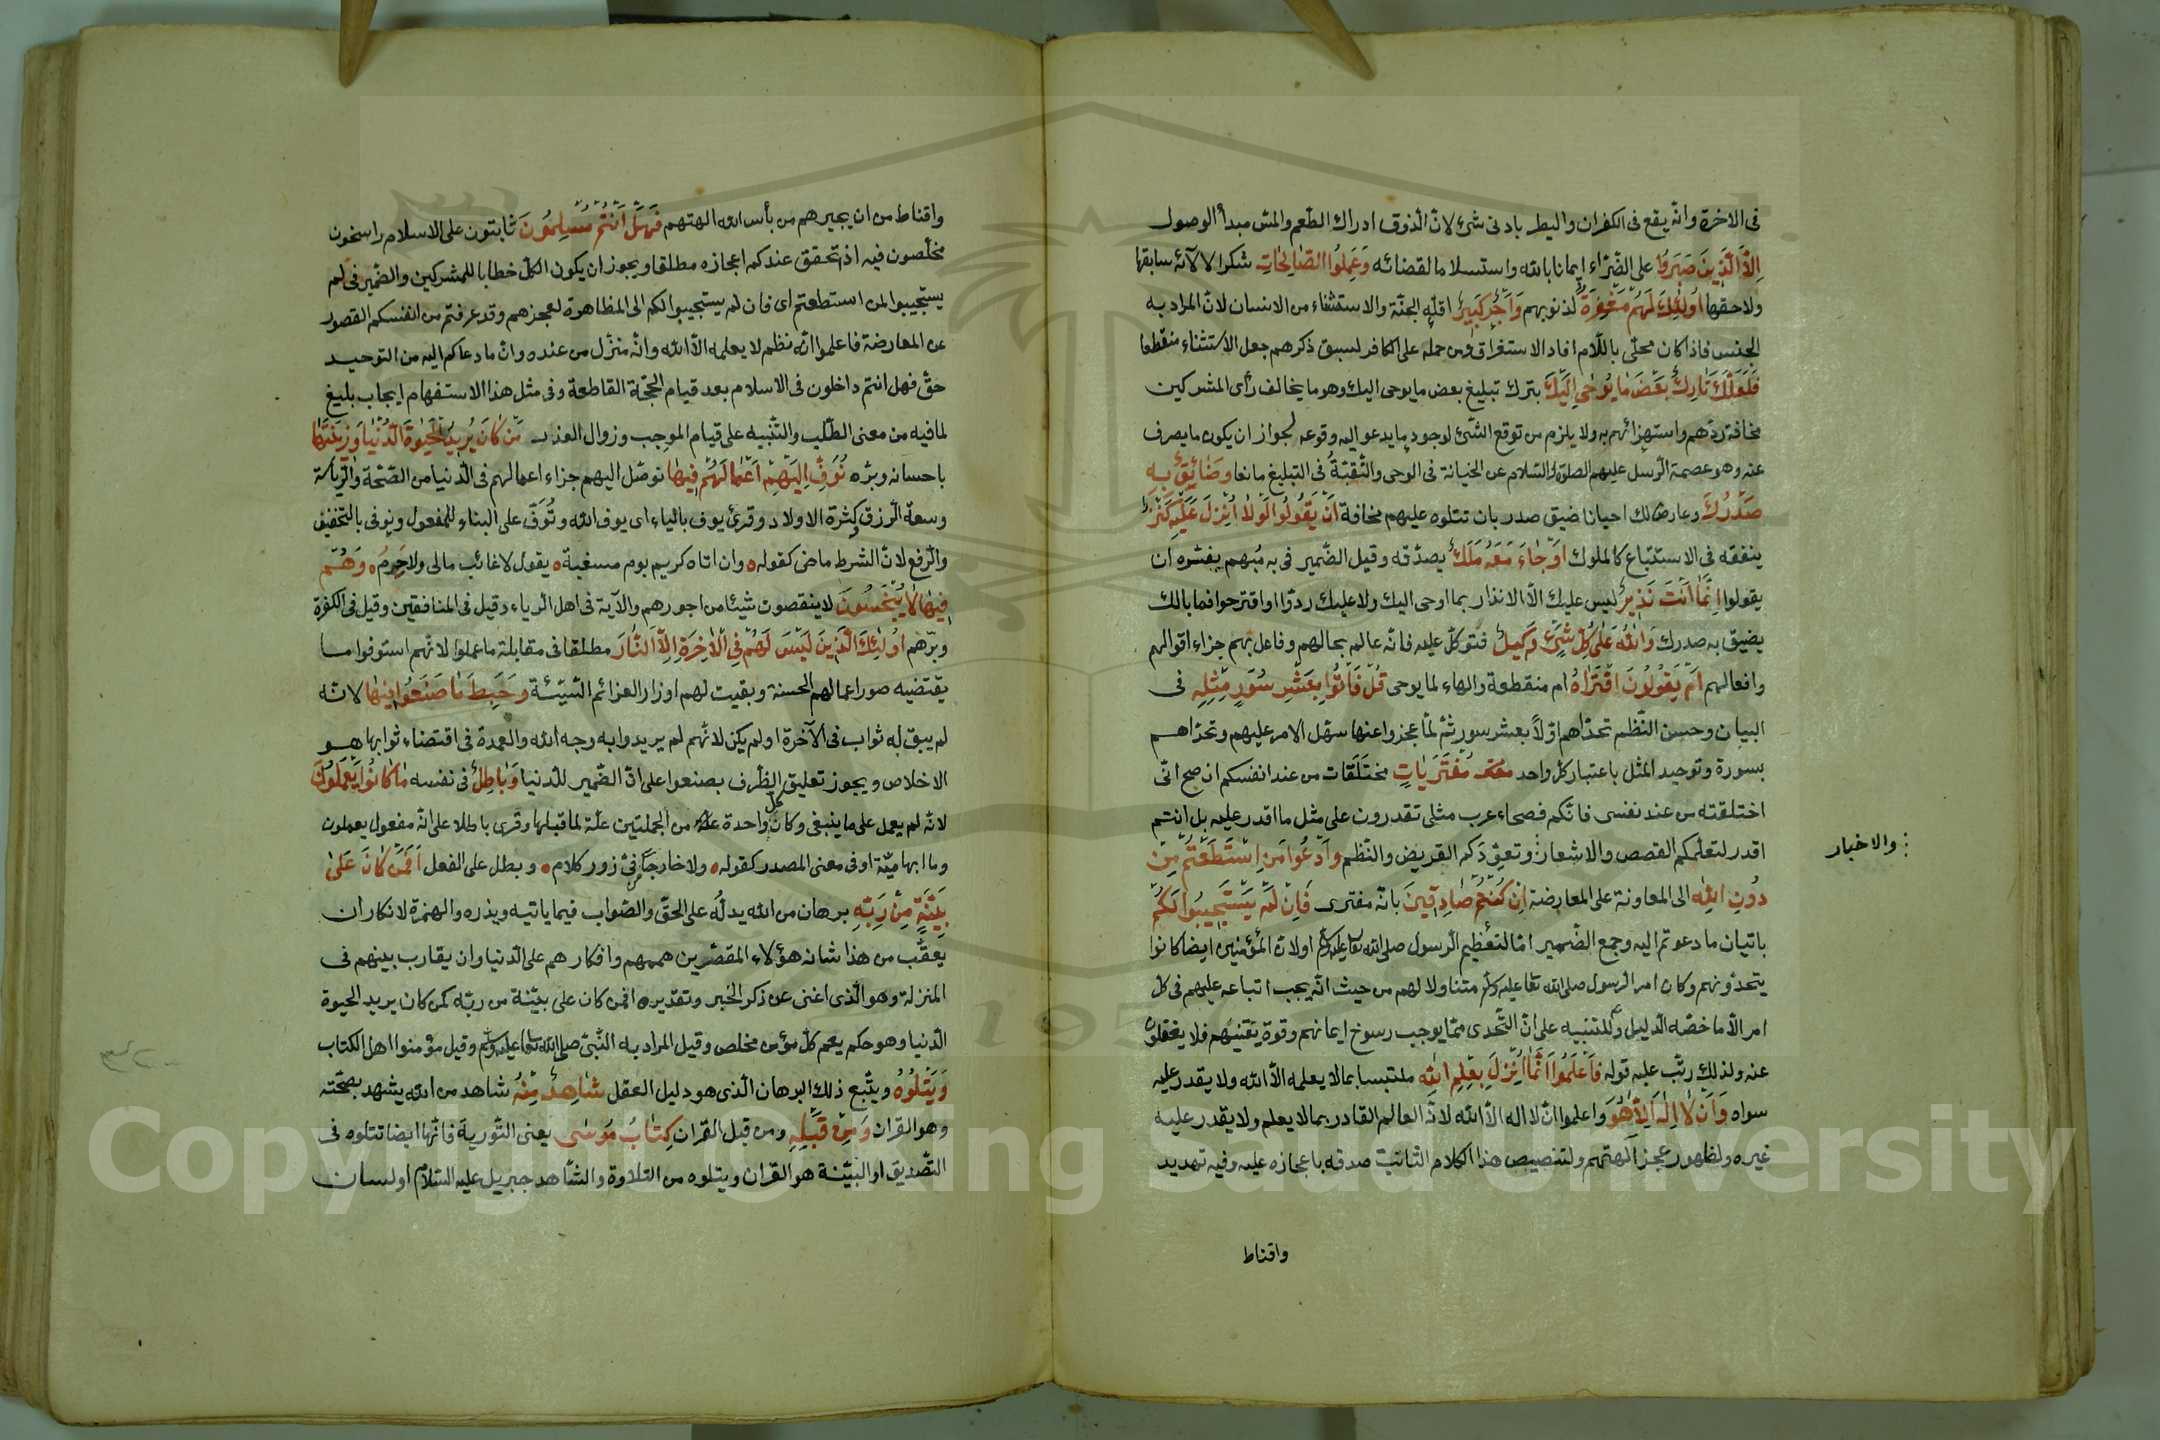 فى الاخرة وانه يقع فى الكفران والبطر بادنى شئ لانّ الذوق ادراك الطّعم والمسّ مبدأ الوصول
اِلَّا الَّذِينَ صَبَرُوا على الضّرّاء ايمانا بالله واستسلاما لقضائه وَعَمِلُوا الصَّالِحَاتِ شكرا لالآئه سابقها
ولاحقها اُولٰئِكَ لَهُمْ مَغْفِرَةٌ لذنوبهم وَاَجْرٌ كَبِيرٌ اقله الجنّة والاستثناء من الانسان لانّ المراد به
الجنس فاذا كان محلّى باللّام افاد الاستغراق ومن حمله على الكافر لسبق ذكرهم جعل الاستثناء منقطعا
فَلَعَلَّكَ تَارِكٌ بَعْضَ مَا يُوحٰى اِلَيْكَ بترك تبليغ بعض ما يوحى اليك وهو ما يخالف رأى المشركين
مخافة ردّهم واستهزائهم به ولا يلزم من توقع الشئ لوجود ما يدعو اليه وقوعه لجواز ان يكون ما يصرف
عنه وهو عصمة الرّسل عليهم الصلوة والسّلام عن الخيانة فى الوحى والثّقيّة فى التبليغ مانعا وَضَائِقٌ بِهِ
صَدْرُكَ وعارض لك احيانا ضيق صدر بان تتلوه عليهم مخافة اَنْ يَقُولُوا لَوْلَا اُنْزِلَ عَلَيْهِ كَنْزٌ
ينفقه فى الاستتباع كالملوك اَوْ جَاءَ مَعَهُ مَلَكٌ يصدّقه وقيل الضّمير فى به مُبهم يفسّره ان
يقولوا اِنَّمَا اَنْتَ نَذِيرٌ ليس عليك الّا الانذار بما اوحى اليك ولا عليك ردّوا او اقترحوا فما بالك
يضيق به صدرك وَاللّٰهُ عَلٰى كُلِّ شَيْءٍ وَكِيلٌ فتوكّل عليه فانّه عالم بحالهم وفاعل بهم جزاء اقوالهم
وافعالهم اَمْ يَقُولُونَ افْتَرَاهُ ام منقطعة والهاء لما يوحى قُلْ فَأْتُوا بِعَشْرِ سُوَرٍ مِثْلِهِ فى
البيان وحسن النّظم تحدّاهم اوّلًا بعشر سور ثمّ لمّا عجزوا عنها سهّل الامر عليهم وتحدّاهم
بسورة وتوحيد المثل باعتبار كل واحد مُفْتَرَيَاتٍ مختَلَقات من عند انفسكم ان صح انّى
اختلقته من عند نفسى فانّكم فصحاء عرب مثلى تقدرون على مثل ما اقدر عليه بل انتم
اقدر لتعلّمكم القصص والاشعار وتعوّدكم القريض والنّظم وَادْعُوا مَنِ اسْتَطَعْتُمْ مِنْ
والاخبار
دُونِ اللّٰهِ الى المعاونة على المعارضة اِنْ كُنْتُمْ صَادِقِينَ بانّه مفترى فَاِنْ لَمْ يَسْتَجِيبُوا لَكُمْ
باتيان ما دعوتم اليه وجمع الضّمير امّا لتعظيم الرّسول صلى الله تعا عليه وسلم او لانّ المؤمنين ايضا كانوا
يتحدّونهم وكان امر الرّسول صلى الله تعا عليه وسلم متناولا لهم من حيث انّه يجب اتباعه عليهم فى كل
امر الّا ما خصّه الدّليل وللتنبيه على انّ التّحدى ممّا يوجب رسوخ ايمانهم وقوة يقينهم فلا يغفلون
عنه ولذلك رتّب عليه قوله فَاعْلَمُوا اَنَّمَا اُنْزِلَ بِعِلْمِ اللّٰهِ ملتبسا بما لا يعلمه الّا الله ولا يقدر عليه
سواه وَاَنْ لَا اِلٰهَ اِلَّا هُوَ واعلموا ان لا اله الّا الله لانّه العالم القادر بما لا يعلم ولا يقدر عليه
غيره ولظهور عجز آلهتهم ولتنصيص هذا الكلام الثّابت صدقه باعجازه عليه وفيه تهديد
واقناط
واقناط من ان يجيرهم من بأس الله الهتهم فَهَلْ اَنْتُمْ مُسْلِمُونَ ثابتون على الاسلام راسخون
مخلّصون فيه اذ تحقق عندكم اعجازه مطلقا ويجوز ان يكون الكلّ خطابا للمشركين والضّمير فى لم
يستجيبوا لمن استطعتم اى فان لم يستجيبوا لكم الى المظاهرة لعجزهم وقد عرفتم من انفسكم القصور
عن المعارضة فاعلموا انّه نظم لا يعلمه الّا الله وانّه منزّل من عنده وان ما دعاكم اليه من التوحيد
حقّ فهل انتم داخلون فى الاسلام بعد قيام الحجّة القاطعة وفى مثل هذا الاستفهام ايجاب بليغ
لما فيه من معنى الطّلب والتّنبيه على قيام الموجب وزوال العذر مَنْ كَانَ يُرِيدُ الْحَيٰوةَ الدُّنْيَا وَزِينَتَهَا
باحسانه وبرّه نُوَفِّ اِلَيْهِمْ اَعْمَالَهُمْ فِيهَا نوصّل اليهم جزاء اعمالهم فى الدّنيا من الصّحّة والرّياسة
وسعة الرّزق وكثرة الاولاد وقرئ يوف بالياء اى يوف الله وتُوَفّ على البناء للمفعول ونوفى بالتخفيف
والرّفع لانّ الشرط ماض كقوله ه وان اتاه كريم يوم مسغبة ه يقول لا غائب مالى ولا حرم ه وَهُمْ
فِيهَا لَا يُبْخَسُونَ لا ينقصون شيئا من اجورهم والآية فى اهل الرّياء وقيل فى المنافقين وقيل فى الكفرة
وبرّهم اُولٰئِكَ الَّذِينَ لَيْسَ لَهُمْ فِى الْاٰخِرَةِ اِلَّا النَّارُ مطلقا فى مقابلة ما عملوا لانّهم استوفوا ما
يقتضيه صور اعمالهم الحسنة وبقيت لهم اوزار العزائم السّيّئة وَحَبِطَ مَا صَنَعُوا فِيهَا لانّه
لم يبق له ثواب فى الآخرة او لم يكن لانّهم لم يريدوا به وجه الله والعمدة فى اقتضاء ثوابها هو
الاخلاص ويجوز تعليق الظّرف بصنعوا على انّ الضّمير للدّنيا وَبَاطِلٌ فى نفسه مَا كَانُوا يَعْمَلُونَ
لانّه لم يعمل على ما ينبغى وكان كلّ واحدة من الجملتين علّة لما قبلها وقرى باطلا على انّه مفعول يعملون
وما ابهاميّة او فى معنى المصدر كقوله ه ولا خارجًا من فىّ زور كلام ه وبطل على الفعل اَفَمَنْ كَانَ عَلٰى
بَيِّنَةٍ مِنْ رَبِّهِ برهان من الله يدلّه على الحقّ والصّواب فيما ياتيه ويذره والهمزة لانكار ان
يعقّب من هذا شانه هؤلاء المقصّرين هممهم وافكارهم على الدّنيا وان يقارب بينهم فى
المنزلة وهو الّذى اغنى عن ذكر الخبر وتقديره افمن كان على بيّنة من ربّه كمن كان يريد الحيوة
الدّنيا وهو حكم يعم كلّ مؤمن مخلص وقيل المراد به النّبىّ صلى الله تعا عليه وسلم وقيل مؤمنوا اهل الكتاب
وَيَتْلُوهُ ويتّبع ذلك البرهان الّذى هو دليل العقل شَاهِدٌ مِنْهُ شاهد من الله يشهد بصحّته
وهو القران وَمِنْ قَبْلِهِ ومن قبل القران كِتَابُ مُوسٰى يعنى التّورية فانّها ايضا تتلوه فى
التّصديق او البيّنة هو القران ويتلوه من التلاوة والشّاهد جبريل عليه السّلام او لسان
Copyright © King Saud University
1957